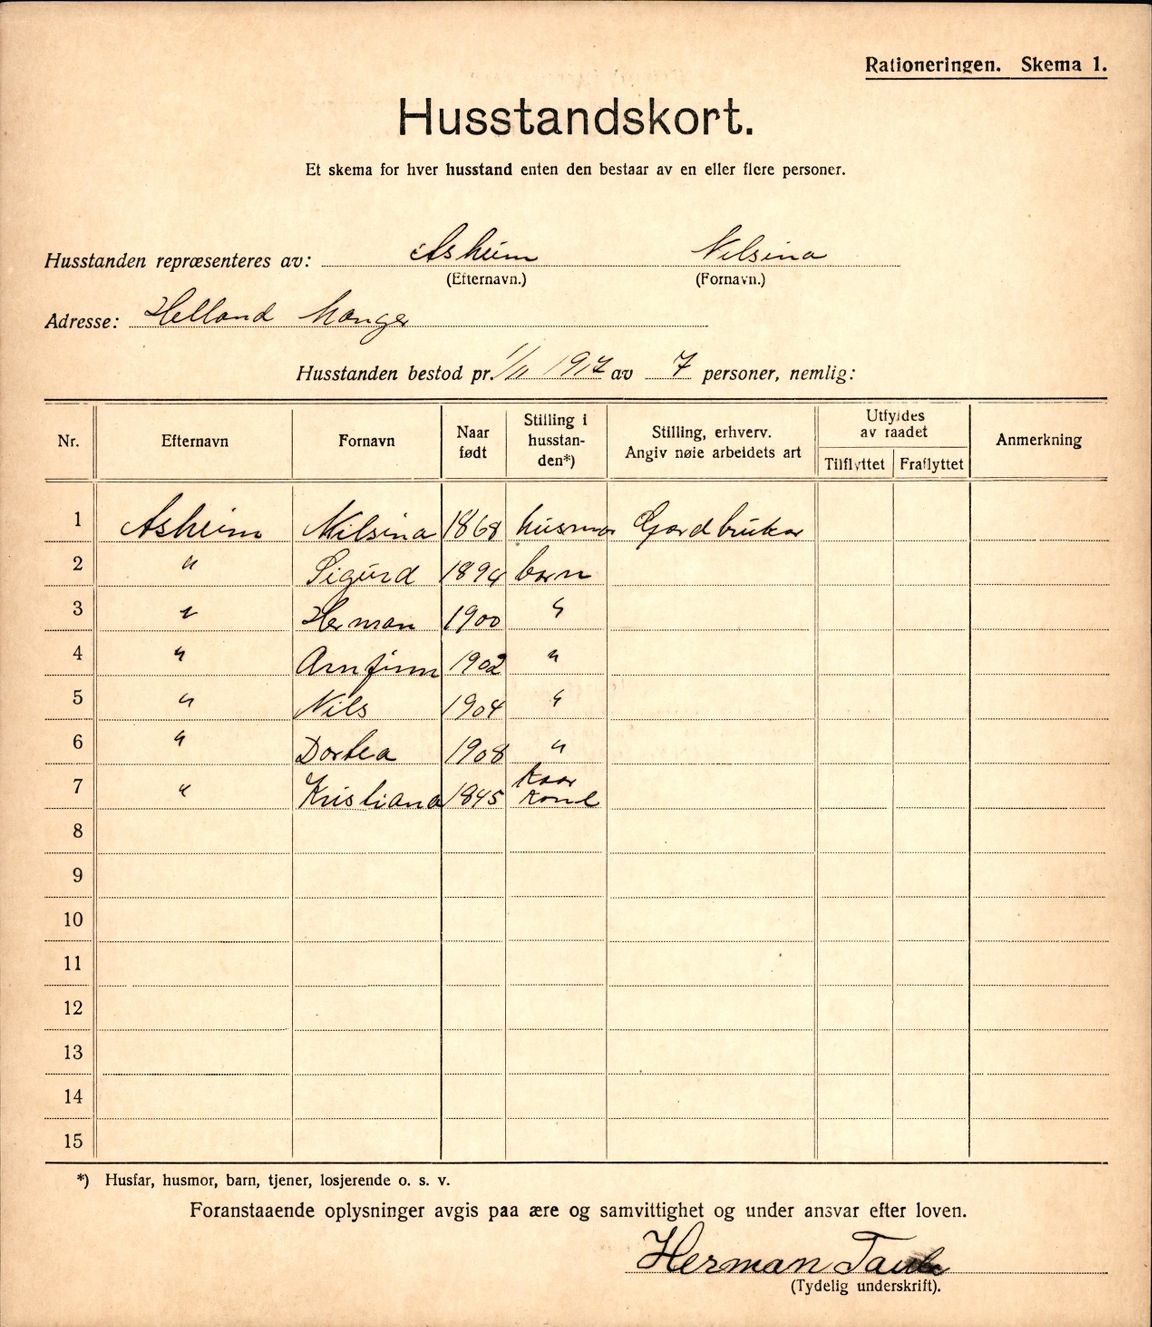 Rationeringen. Skema 1.
Husstandskort.
Et skema for hver husstand enten den bestaar av en eller flere personer.
Husstanden repræsenteres av: Asheim Nilsina
(Efternavn.) (Fornavn.)
Adresse: Helland Manger
Husstanden bestod pr. 1/11 1917 av 7 personer, nemlig:
Nr. Efternavn Fornavn Naar født Stilling i husstanden*) Stilling, erhverv. Angiv nøie arbeidets art Utfyldes av raadet Tilflyttet Fraflyttet Anmerkning
1 Asheim Nilsina 1868 husmor Gardbrukar
2 " Sigurd 1894 barn
3 " Herman 1900 "
4 " Arnfinn 1902 "
5 " Nils 1904 "
6 " Dortea 1908 "
7 " Kristiana 1845 Kaar Kone
8
9
10
11
12
13
14
15
*) Husfar, husmor, barn, tjener, losjerende o. s. v.
Foranstaaende oplysninger avgis paa ære og samvittighet og under ansvar efter loven.
Herman
(Tydelig underskrift).